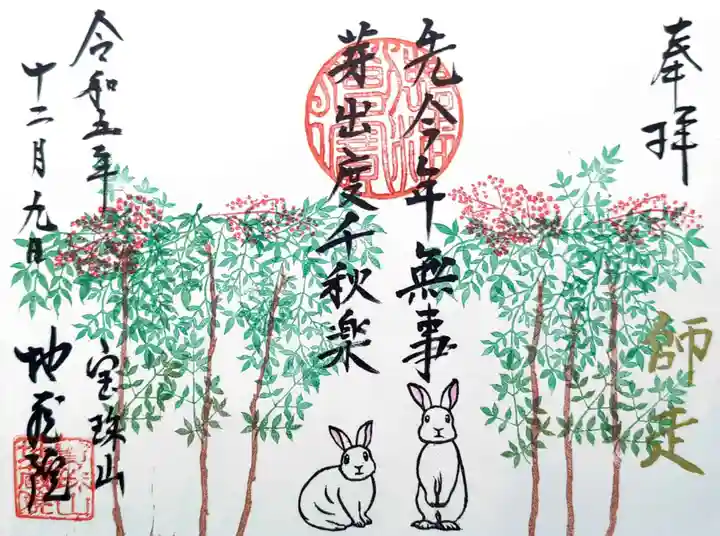 奉拝
師走
先今年無事
芽出度千秋楽
令和五年
十二月九日
宝珠山
地蔵院